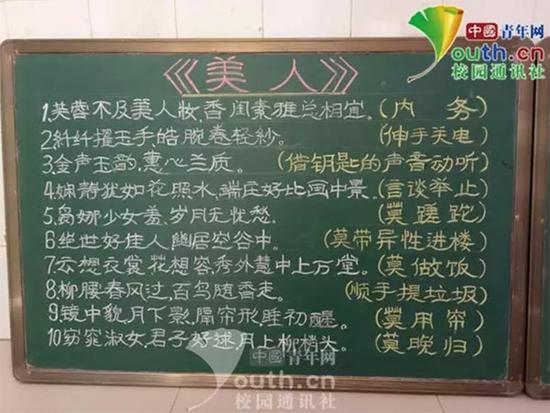 中國青年网
youth.cn
校园通讯社
《美人》
1.芙蓉不及美人妆,香闺素雅兰相宜。(内务)
2.纤纤擢玉手皓腕卷轻纱。(伸手关电)
3.金声玉韵,惠心兰质。(借钥匙的声音动听)
4.娴静犹如花照水,端庄好比画中景。(言谈举止)
5.袅娜少女羞,岁月无忧愁。(莫蹉跎)
6.绝世好佳人幽居空谷中。(莫带异性进楼)
7.云想衣裳花想容,秀外慧中上万堂。(莫做饭)
8.柳腰春风过,百鸟随香走。(顺手提垃圾)
9.镜中貌,月下影,隔帘形,睡初醒。(莫用帘)
10.窈窕淑女,君子好逑,月上柳梢头。(莫晚归)
中國青年网
youth.cn
校园通讯社